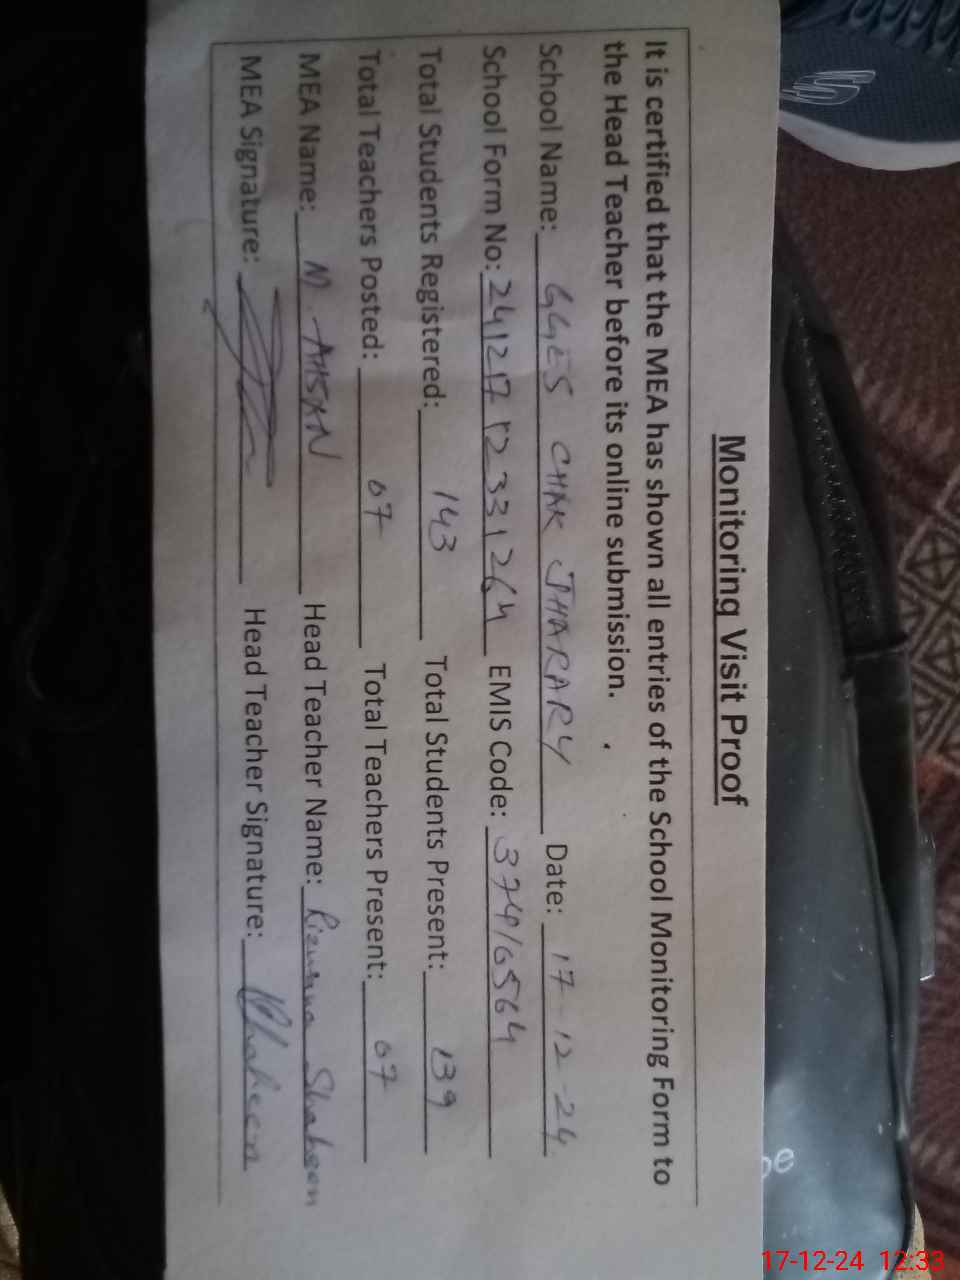 Monitoring Visit Proof
It is certified that the MEA has shown all entries of the School Monitoring Form to
the Head Teacher before its online submission.
School Name: GGES CHAK JHARARY Date: 17-12-24
School Form No: 241217 12331264 EMIS Code: 37416564
Total Students Registered: 143 Total Students Present: 139
Total Teachers Posted: 07 Total Teachers Present: 07
MEA Name: M. AHSAN Head Teacher Name: Rizwana Shaheen
MEA Signature: Head Teacher Signature: Shaheen
17-12-24 12:33